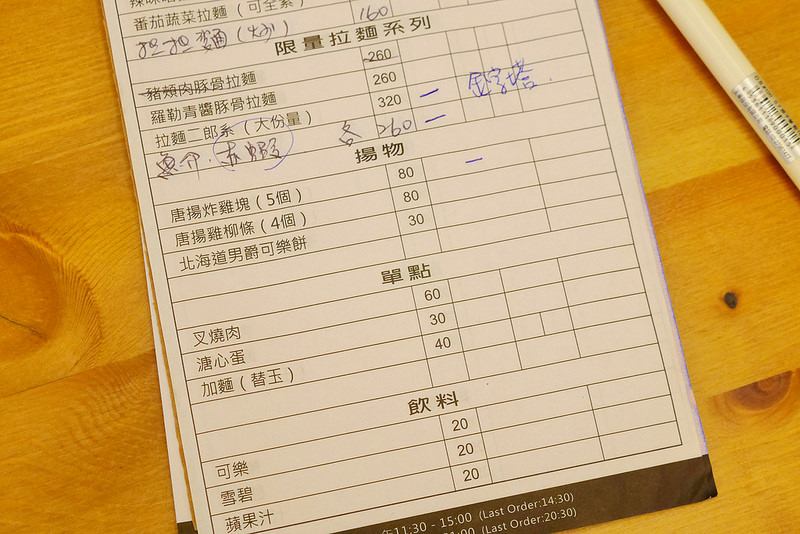 番茄蔬菜拉麵（可全素） 160
担担麵（小）
限量拉麵系列
豬頰肉豚骨拉麵 260
羅勒青醬豚骨拉麵 260
拉麵二郎系（大份量） 320 一 金字塔
魚介．赤蝦 各 260 一
揚物
唐揚炸雞塊（5個） 80 一
唐揚雞柳條（4個） 80
北海道男爵可樂餅 30
單點
叉燒肉 60
溏心蛋 30
加麵（替玉） 40
飲料
可樂 20
雪碧 20
蘋果汁 20
11:30 - 15:00 (Last Order:14:30)
(Last Order:20:30)